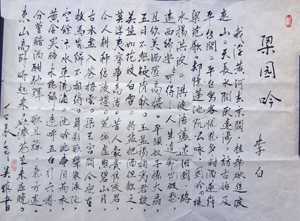 梁园吟 李白
我浮黄河去京阙挂席欲进波
连山天长水阔厌远涉访古始及
平台间平台为客忧思多对酒遂作
梁园歌却忆蓬池阮公咏因吟渌
水扬洪波洪波浩荡迷旧国路
远西归安可得人生达命岂暇愁
且饮美酒登高楼平头奴子摇大扇
五月不热疑清秋玉盘杨梅为君设
吴盐如花皎白雪持盐把酒但饮之
莫学夷齐事高洁昔人豪贵信陵君
今人耕种信陵坟荒城虚照碧山月
古木尽入苍梧云梁王宫阙今安在
枚马先归不相待舞影歌声散渌池
空余汴水东流海沉吟此事泪满衣
黄金买醉未能归连呼五白行六博
分曹赌酒酣驰晖歌且谣意方远
东山高卧时起来欲济苍生未应晚